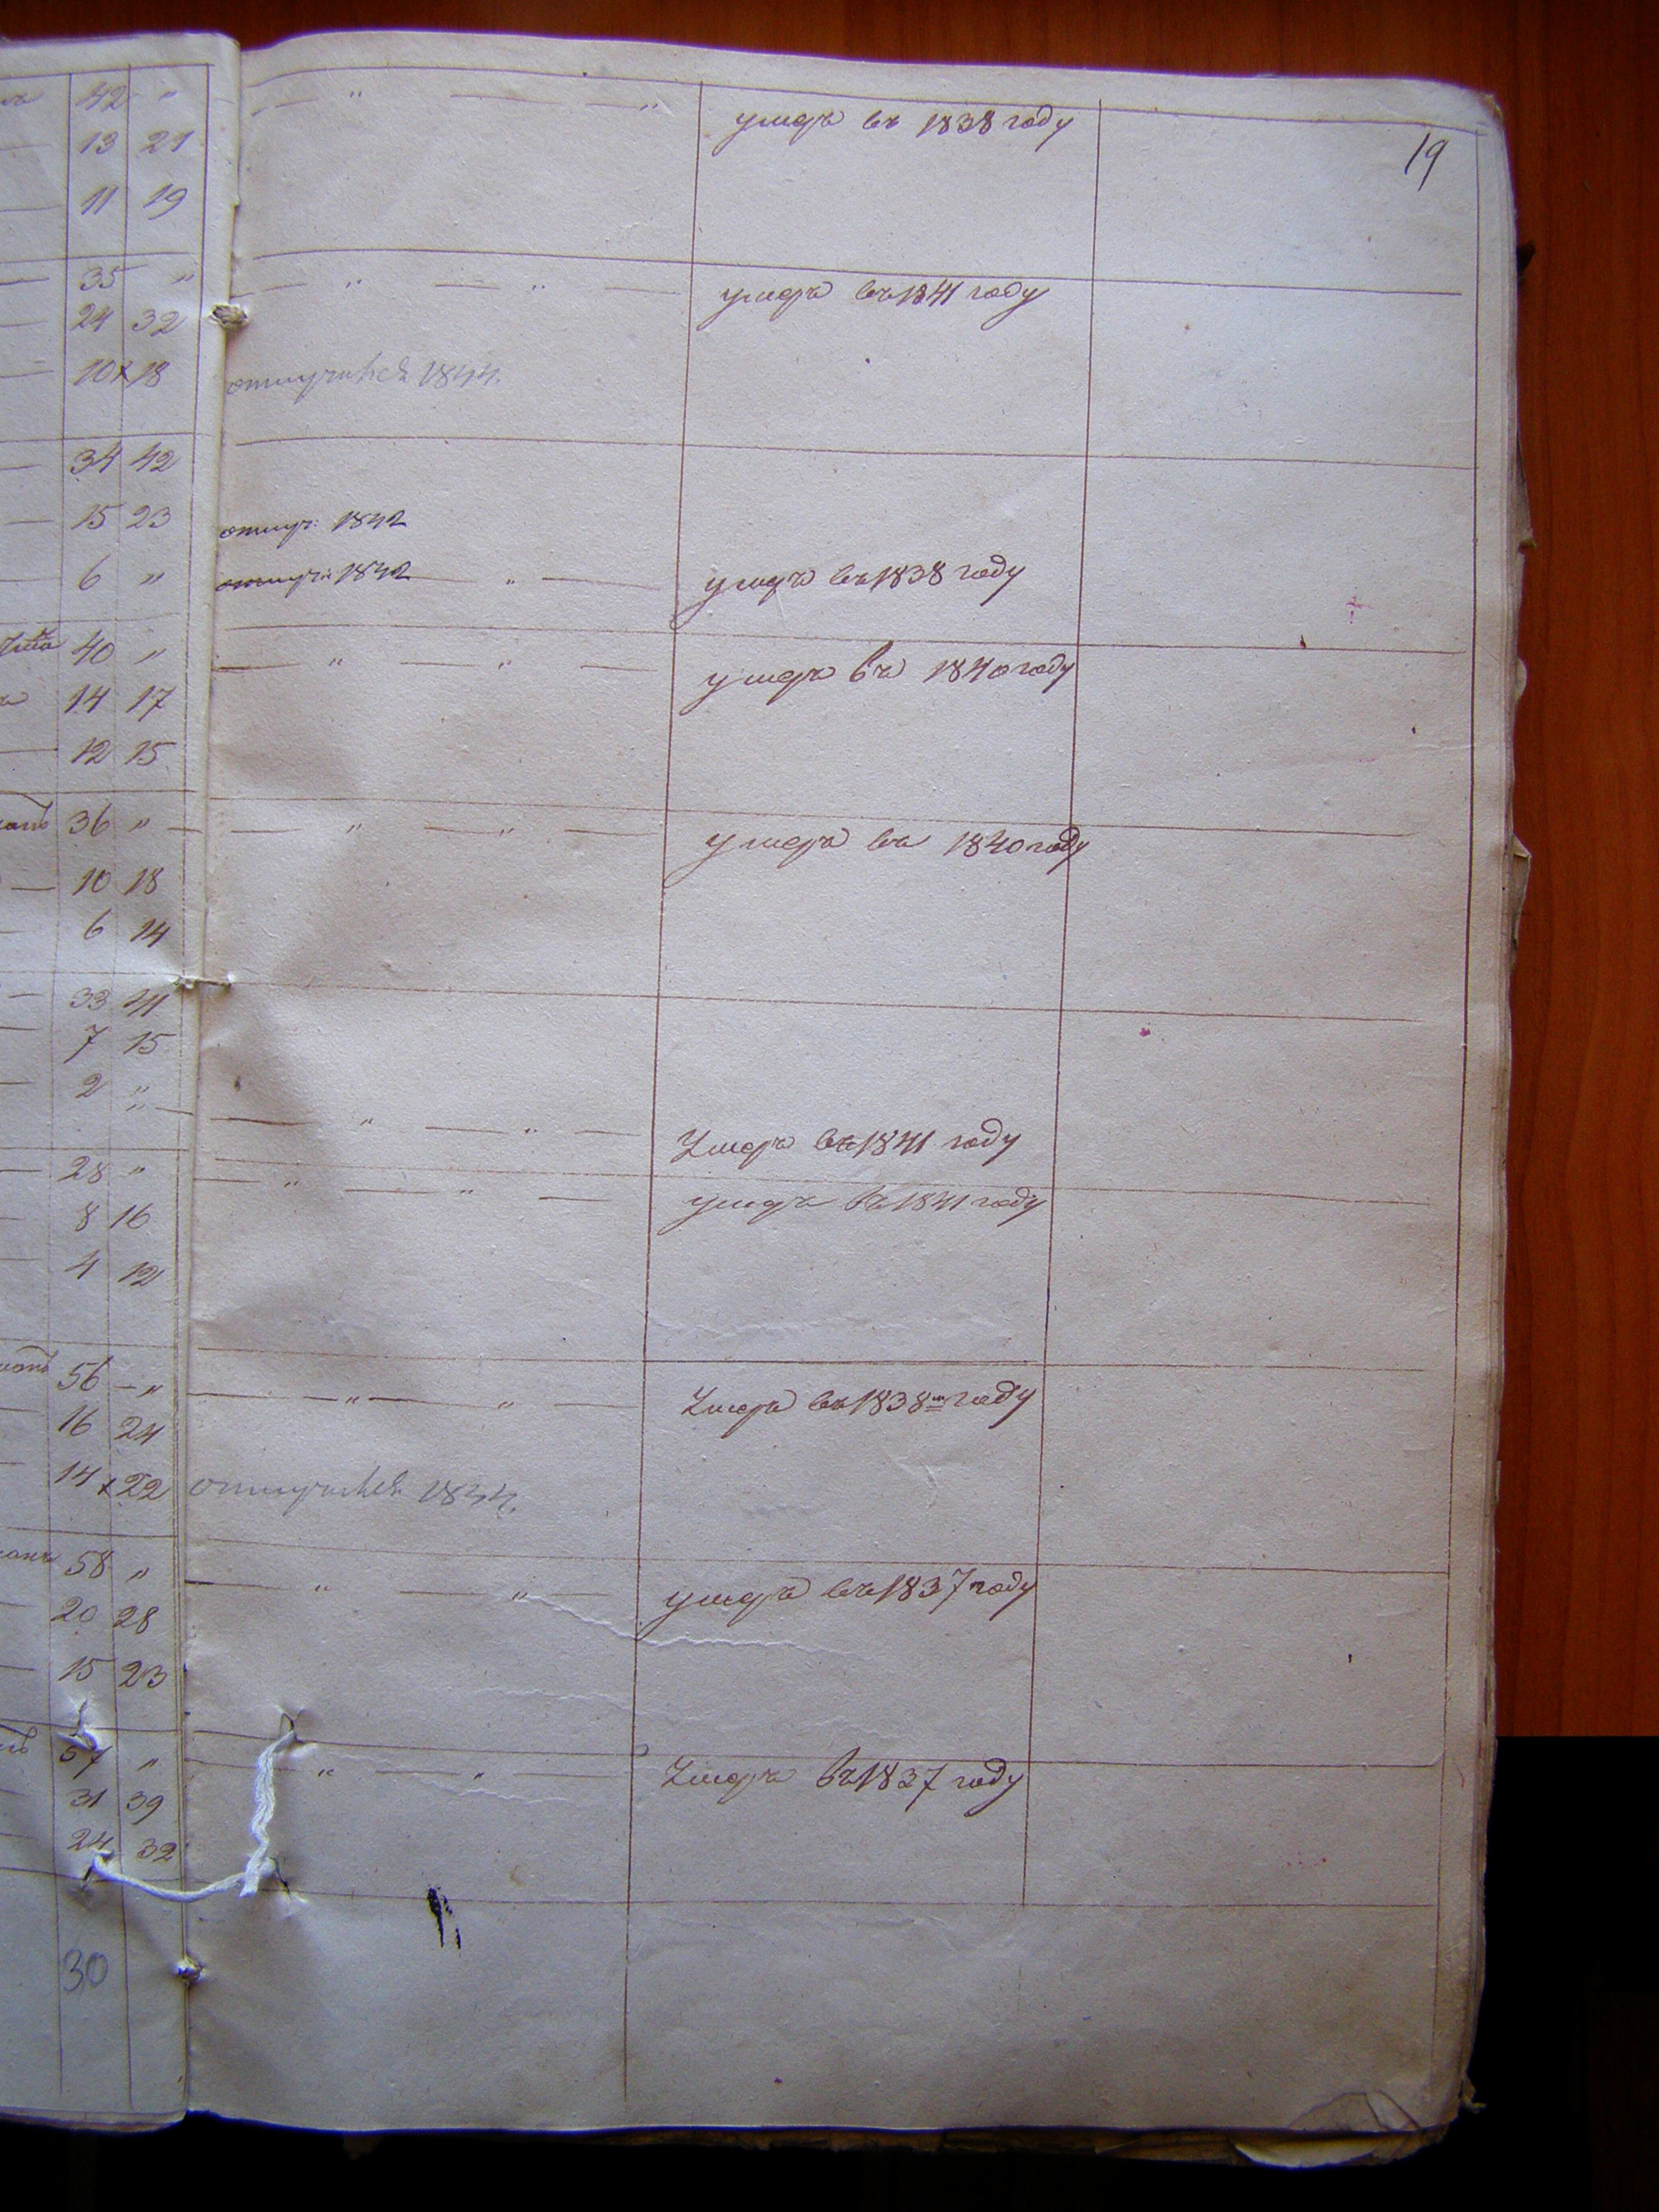 19
42 " — " — — " умеръ въ 1838 году
13 21
11 19
35 " — " — " — умеръ въ 1841 году
24 32
10 x 18 1844.
34 42
15 23 отлуч: 1842
6 " отлуч: 1842 — " — умеръ въ 1838 году
40 " — " — " — умеръ въ 1840 году
14 17
12 15
36 " — — " — " — умеръ въ 1840 году
10 18
6 14
33 41
7 15
2 " — — " — " — Умеръ въ 1841 году
28 " — " — " — умеръ въ 1841 году
8 16
4 12
56 — " — — " — " — Умеръ въ 1838м году
16 24
14 x 22 1844.
58 " — " — " — умеръ въ 1837 году
20 28
15 23
57 " — " — " — Умеръ въ 1837 году
31 39
24 32
30